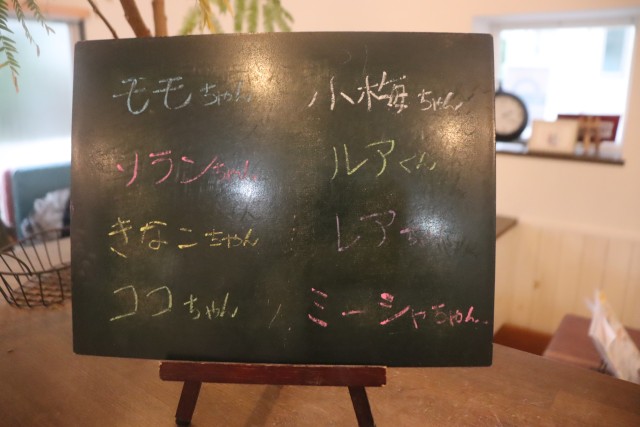 モモちゃん
ソランちゃん
きなこちゃん
ココちゃん
小梅ちゃん
ルアくん
レアちゃん
ミーシャちゃん